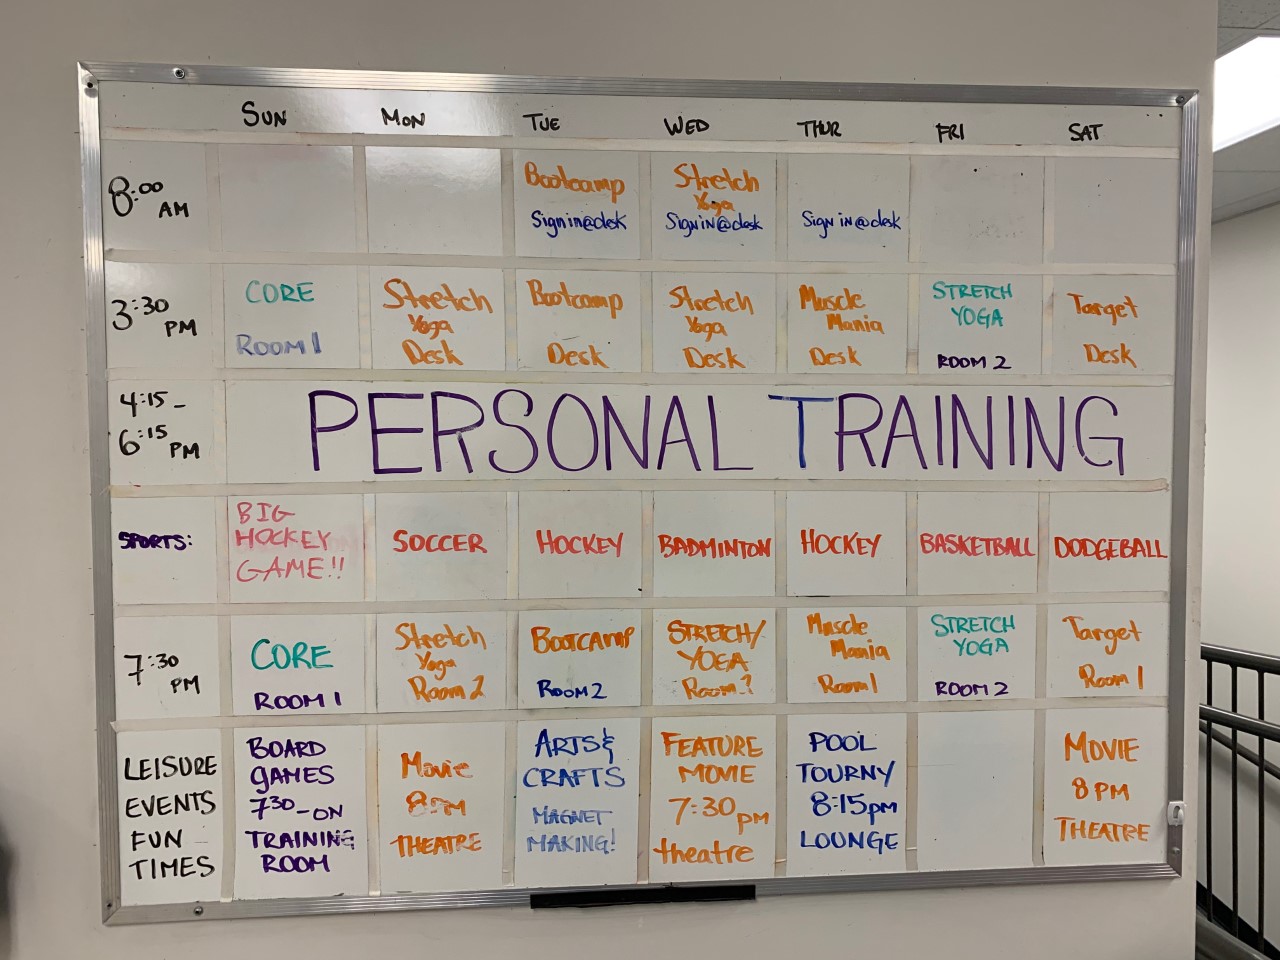 SUN MON TUE WED THUR FRI SAT
8:00 AM
Bootcamp
Sign in @ desk
Stretch
Yoga
Sign in @ desk
Sign in @ desk
3:30 PM
CORE
ROOM 1
Stretch
Yoga
Desk
Bootcamp
Desk
Stretch
Yoga
Desk
Muscle
Mania
Desk
STRETCH
YOGA
ROOM 2
Target
Desk
4:15 -
6:15 PM
PERSONAL TRAINING
SPORTS:
BIG
HOCKEY
GAME!!
SOCCER
HOCKEY
BADMINTON
HOCKEY
BASKETBALL
DODGEBALL
7:30 PM
CORE
ROOM 1
Stretch
Yoga
Room 2
BOOTCAMP
ROOM 2
STRETCH/
YOGA
Room
Muscle
Mania
Room 1
STRETCH
YOGA
ROOM 2
Target
Room 1
LEISURE
EVENTS
FUN
TIMES
BOARD
GAMES
7:30 - ON
TRAINING
ROOM
Movie
8PM
THEATRE
ARTS &
CRAFTS
MAGNET
MAKING!
FEATURE
MOVIE
7:30pm
theatre
POOL
TOURNY
8:15pm
LOUNGE
MOVIE
8 PM
THEATRE